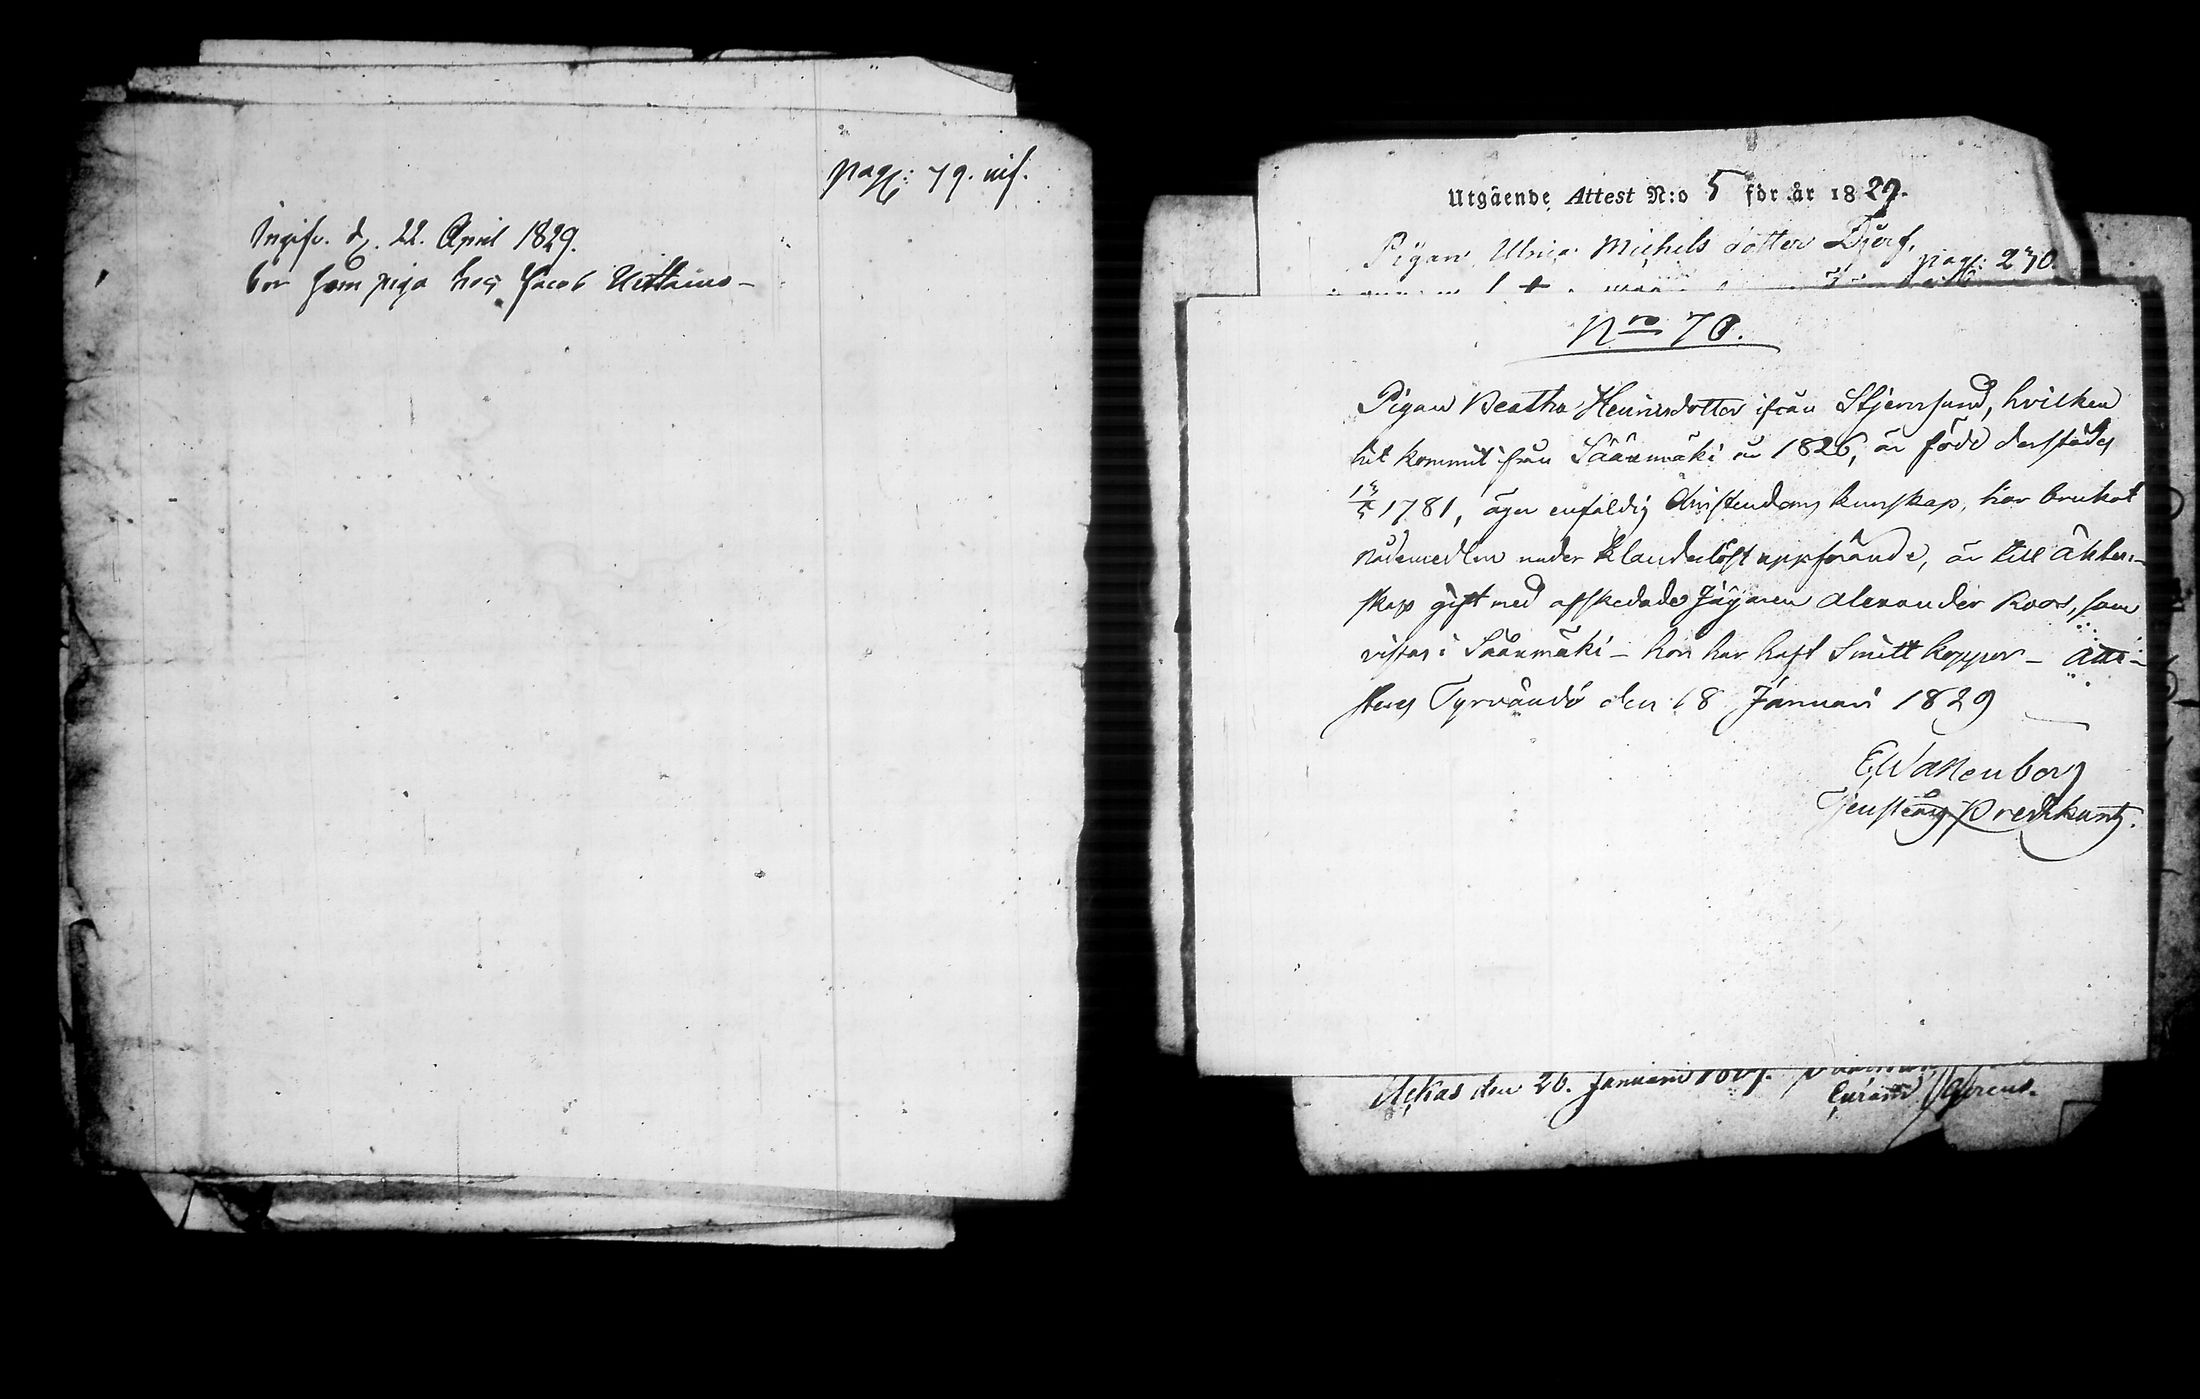 pag: 79. inf.
Ingifv. d. 22. April 1829.
bor som piga hos Jacob
Utgående Attest N:o 5 för år 1829.
Pigan Ulrica Michels dotter Djerf,
pag: 270.
Nro 70.
Pigan Beatha Henricsdotter ifrån Stjernsund, hvilken
hit kommit från Sääxmäki år 1826, är född derstädes
1781, äger enfaldig Christendoms kunskap, har brukat
nådemedlen under klanderlöst uppförande, är till äkten-
skap gift med afskedade Jägaren Alexander Roos, som
vistas i Sääxmäki – hon har haft Smittkoppor – Atte-
steres Tyrvändö den 18 Januari 1829
E Wallenborg
Tjenst Predikant.
Ackas den 26. Januarii 1829.